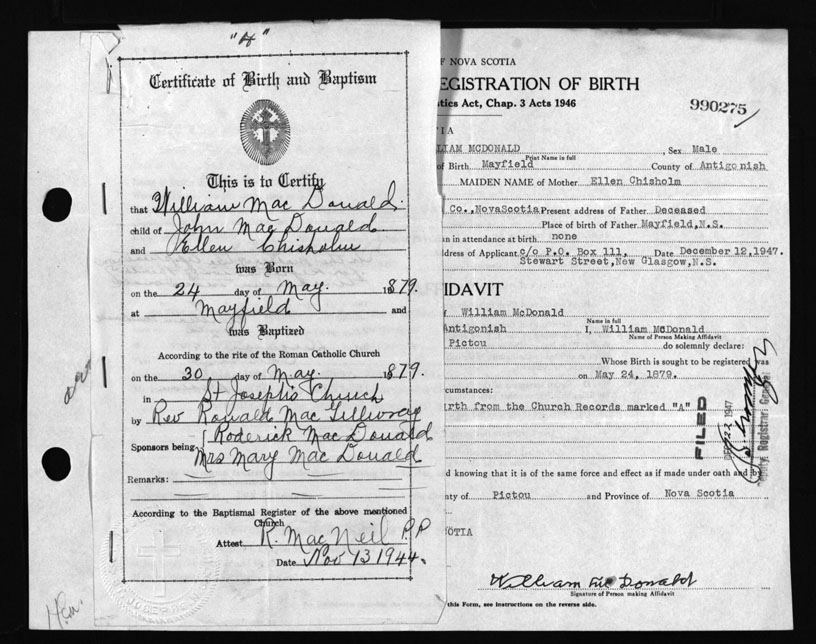 "A"
Certificate of Birth and Baptism
This is to Certify
that William Mac Donald.
child of John Mac Donald
and Ellen Chisholm
was Born
on the 24 day of May. 1879.
at Mayfield and
was Baptized
According to the rite of the Roman Catholic Church
on the 30 day of May. 1879.
in St Joseph's Church
by Rev Ronald Mac Gillivray
Sponsors being Roderick Mac Donald
Mrs Mary Mac Donald
Remarks:
According to the Baptismal Register of the above mentioned
Church
Attest R. Mac Neil P.P.
Date Nov 13 1944.
F NOVA SCOTIA
EGISTRATION OF BIRTH
tics Act, Chap. 3 Acts 1946
990275
TIA
LIAM MCDONALD, Sex Male
Print Name in full
of Birth Mayfield County of Antigonish
MAIDEN NAME of Mother Ellen Chisholm
Co., NovaScotia Present address of Father Deceased
Place of birth of Father Mayfield, N.S.
an in attendance at birth none
dress of Applicant c/o P.O. Box 111, Date December 12, 1947.
Stewart Street, New Glasgow, N.S.
IDAVIT
f William McDonald
Name in full
Antigonish I, William McDonald
Name of Person Making Affidavit
Pictou do solemnly declare:
Whose Birth is sought to be registered was
on May 24, 1879.
cumstances:
rth from the Church Records marked "A"
FILED
22 1947
Registrar General
d knowing that it is of the same force and effect as if made under oath and
ty of Pictou and Province of Nova Scotia
OTIA
William McDonald
Signature of Person making Affidavit
this Form, see instructions on the reverse side.